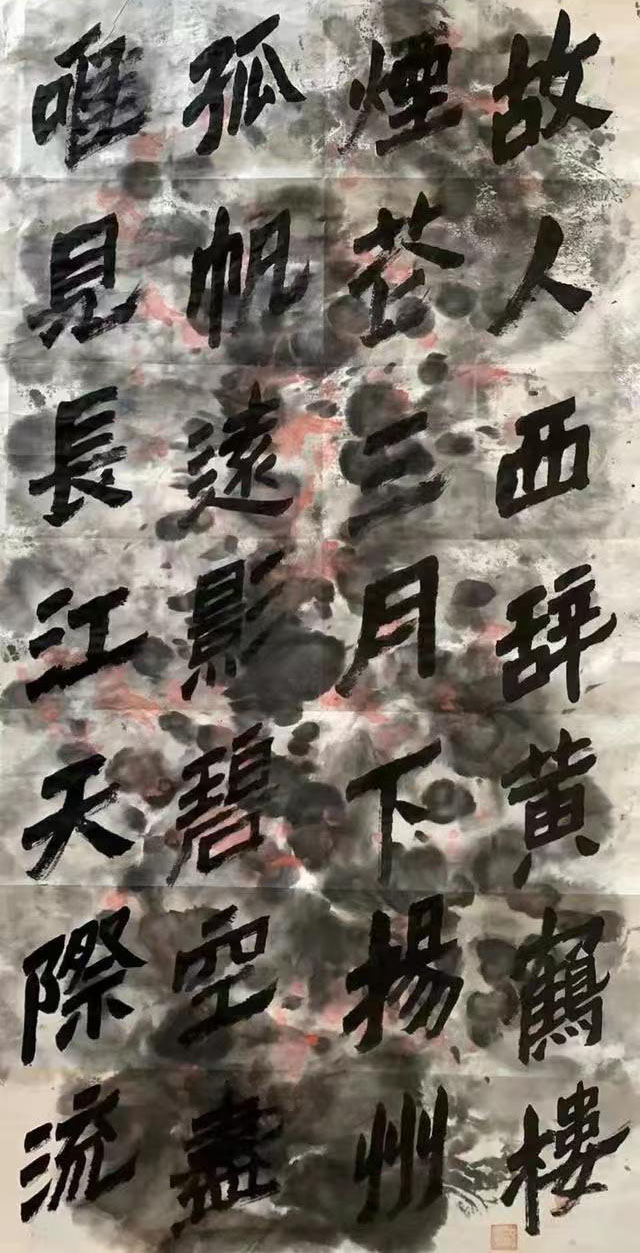 故人西辞黄鶴樓
煙花三月下揚州
孤帆遠影碧空盡
唯見長江天際流